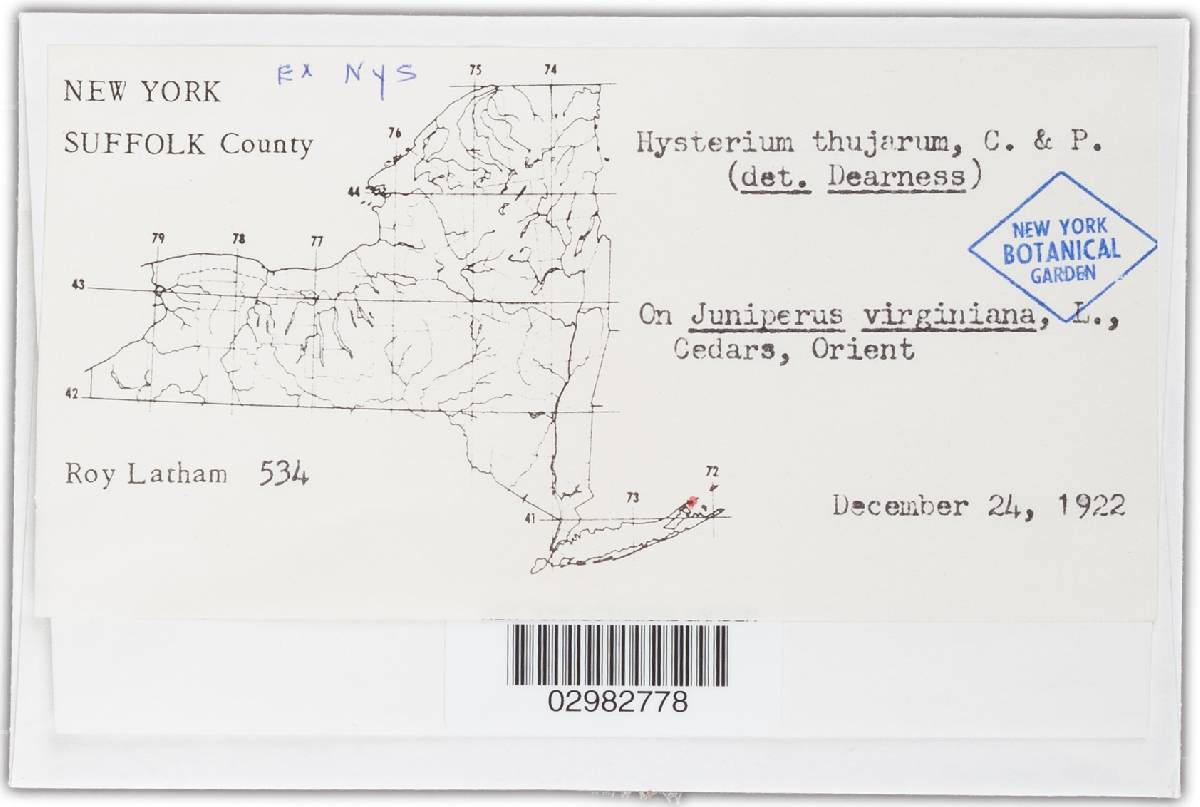 Ex NYS
NEW YORK
SUFFOLK County
75 74
76
44
79 78 77
43
42
73 72
41
Hysterium thujarum, C. & P.
(det. Dearness)
NEW YORK
BOTANICAL
GARDEN
On Juniperus virginiana, L.,
Cedars, Orient
Roy Latham 534
December 24, 1922
02982778